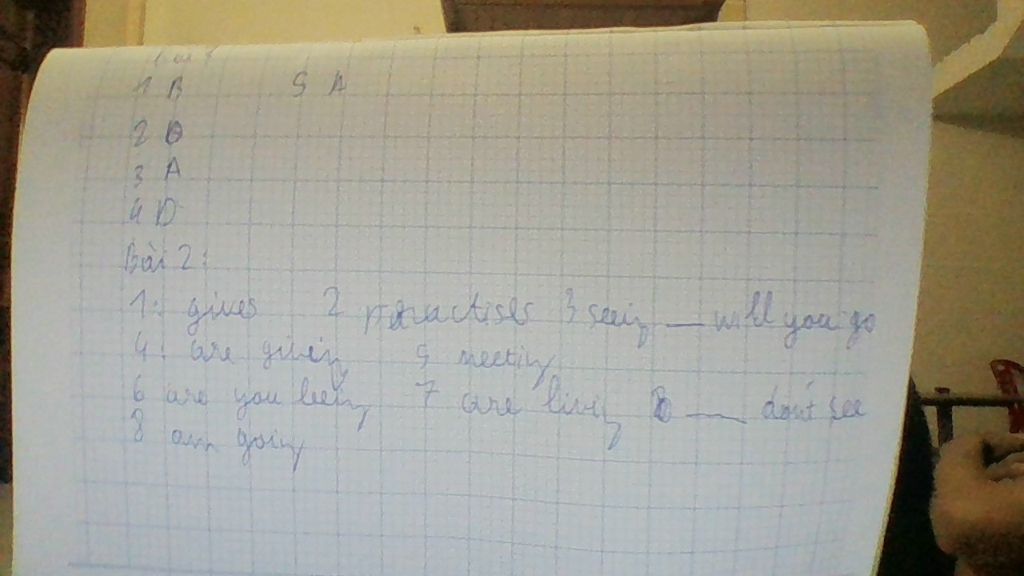 1 B 5 A
2
3 A
4 D
Bài 2:
1: gives 2 practises 3 seeing — will you go
4: are giving 5 meeting
6 are you being 7 are living — don't see
8 am going